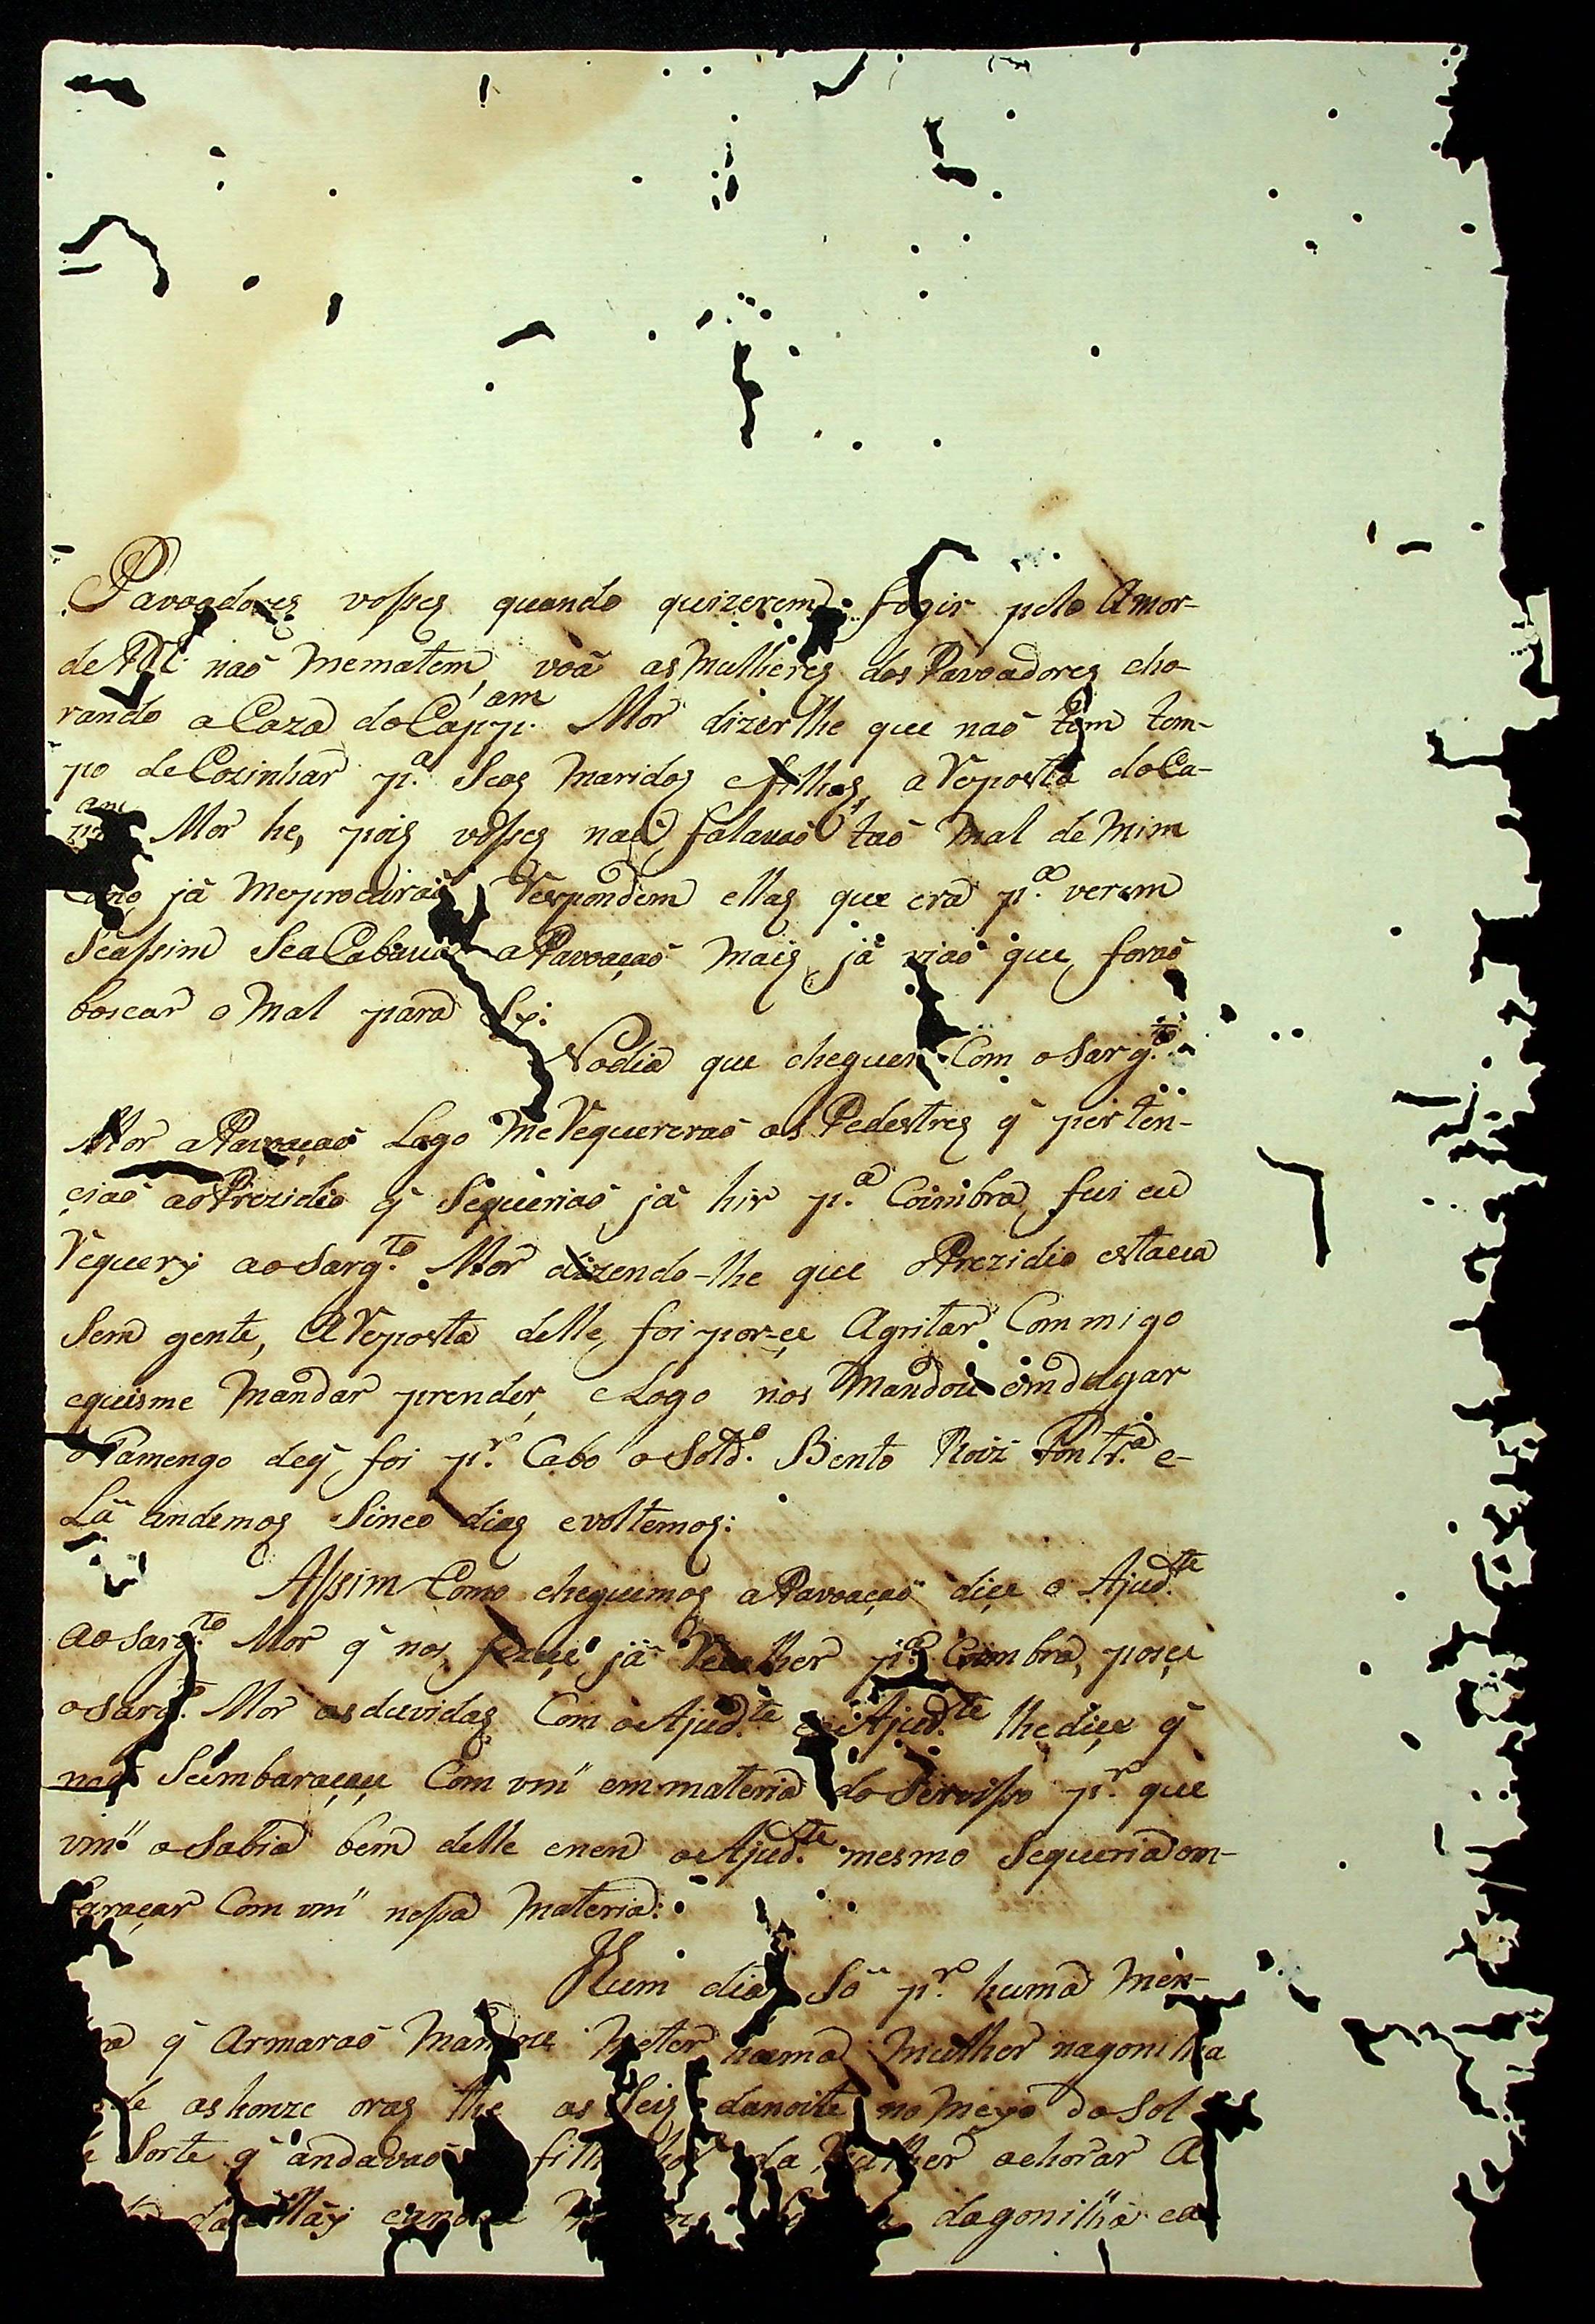 Pavoadores voſses quando quizerem fogir pelo Amor-
de naõ mematem, voã as Mulheres dos Pavoadores cho-
rando a Caza do Capp.am Mor dizerlhe que naõ tem tem-
po de Cozinhar p.a Seos Maridos e filhos, a Reposta do Ca-
pp.am Mor he, pois voſses naõ falavaõ taõ Mal de Mim
Como já Meprocuraõ Respondem ellas que era p.a verem
Seaſsim SeaCabava aPavoaçaõ Mais já viaõ que foraõ
boscar o Mal para Sy:
Nodia que cheguei Com o Sarg.to
Mor aPavoaçaõ Logo MeRequereraõ os Pedestres q̃ perten-
çiaõ aoPrezidio q̃ Sequeriaõ já hir p.a Coimbra, fui eu
Requery ao Sarg.to Mor dizendo-lhe que oPrezidio estava
Sem gente, AReposta delle foi por-çe Agritar Commigo
equisme Mandar prender, eLogo nos Mandou emdagar
oTamengo deq̃ foi p.r Cabo o Sold.o Bento Roiz Fontr.a e-
Lá andemos Sinco dias evoltemos:
Aſsim Como cheguemos aPavoaçaõ diçe o Ajud.te
ao Sarg.to Mor q̃ nos fizeçe já Recolher p.a Coimbra, poçe
o Sarg.to Mor as duvidas Com o Ajud.te e o Ajud.te lhediçe q̃
naõ Seimbaraçaçe Com vm.ce em materia do Serviſso p.r que
vm.ce o Sabia bem delle enem o Ajud.te mesmo Sequeria em-
baraçar Com vm.ce neſsa Materia:
Hum dia Só p.r huma Men-
q̃ Armaraõ Meter huma Mulher nagonilha
as honze oras the as Seis danoite no Meyo do Sol
Sorte q̃ andavaõ da Mulher achorar A
da Mãy dagonilha